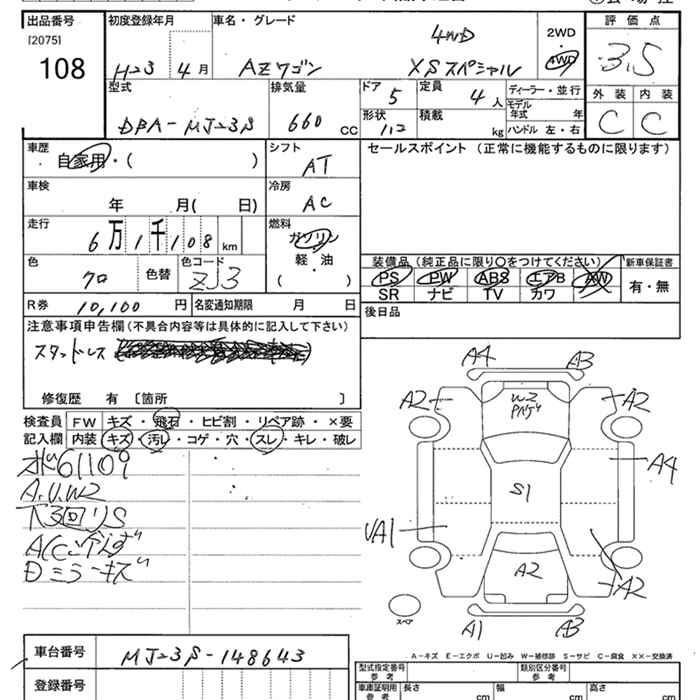 出品番号 初度登録年月 車名・グレード 4WD 2WD 評価点
[2075] 4WD
108 H23 4月 AZワゴン XSスペシャル 3.5
型式 排気量 ドア 5 定員 4人 ディーラー・並行 外装 内装
DBA-MJ23S 660 CC 形状 積載 kg モデル年式 年 C C
ハンドル 左・右
車歴 シフト セールスポイント (正常に機能するものに限ります)
自家用・( ) AT
車検 冷房
年 月( 日) AC
走行 燃料
6万1千108 km ガソリン
色 色コード 軽・油 装備品 (純正品に限り○をつけてください) 新車保証書
クロ 色替 ZJ3 ( ) PS PW ABS エアB AW 有・無
SR ナビ TV カワ
R券 10,100 円 名変通知期限 月 日 後日品
注意事項申告欄(不具合内容等は具体的に記入して下さい)
スタッドレス
修復歴 有 〔箇所 〕
検査員 FW キズ・飛石・ヒビ割・リペア跡・×要
記入欄 内装 キズ・汚レ・コゲ・穴・スレ・キレ・破レ
A4 A3
A2 W2 A2
61109
A.U.W2
下3回りS
A4
S1
UA1
Dミラーキズ
A2 A2
スペア
A1 A3
A-キズ E-エクボ U-凹み W-補修跡 S-サビ C-腐食 ××-交換済
車台番号 MJ23S-148643
型式指定番号 参考 類別区分番号 参考
登録番号 車庫証明用 参考 長さ cm 幅 cm 高さ cm